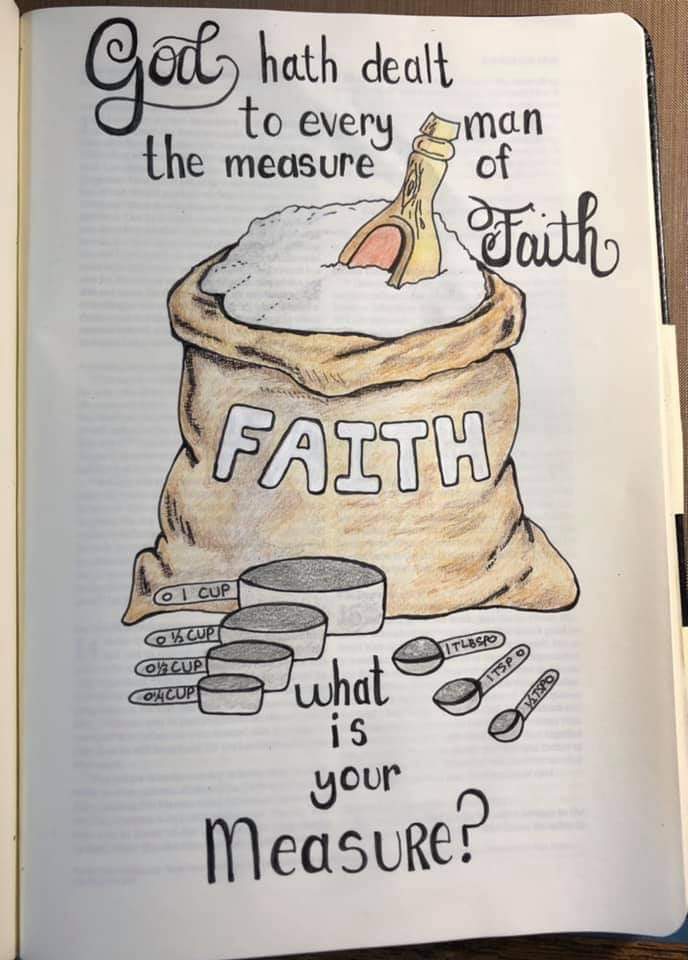 God hath dealt
to every man
the measure of
Faith
FAITH
1 CUP
½ CUP
CUP
¼ CUP
1 TLBSP
1 TSP
½ TSP
what
is
your
Measure?